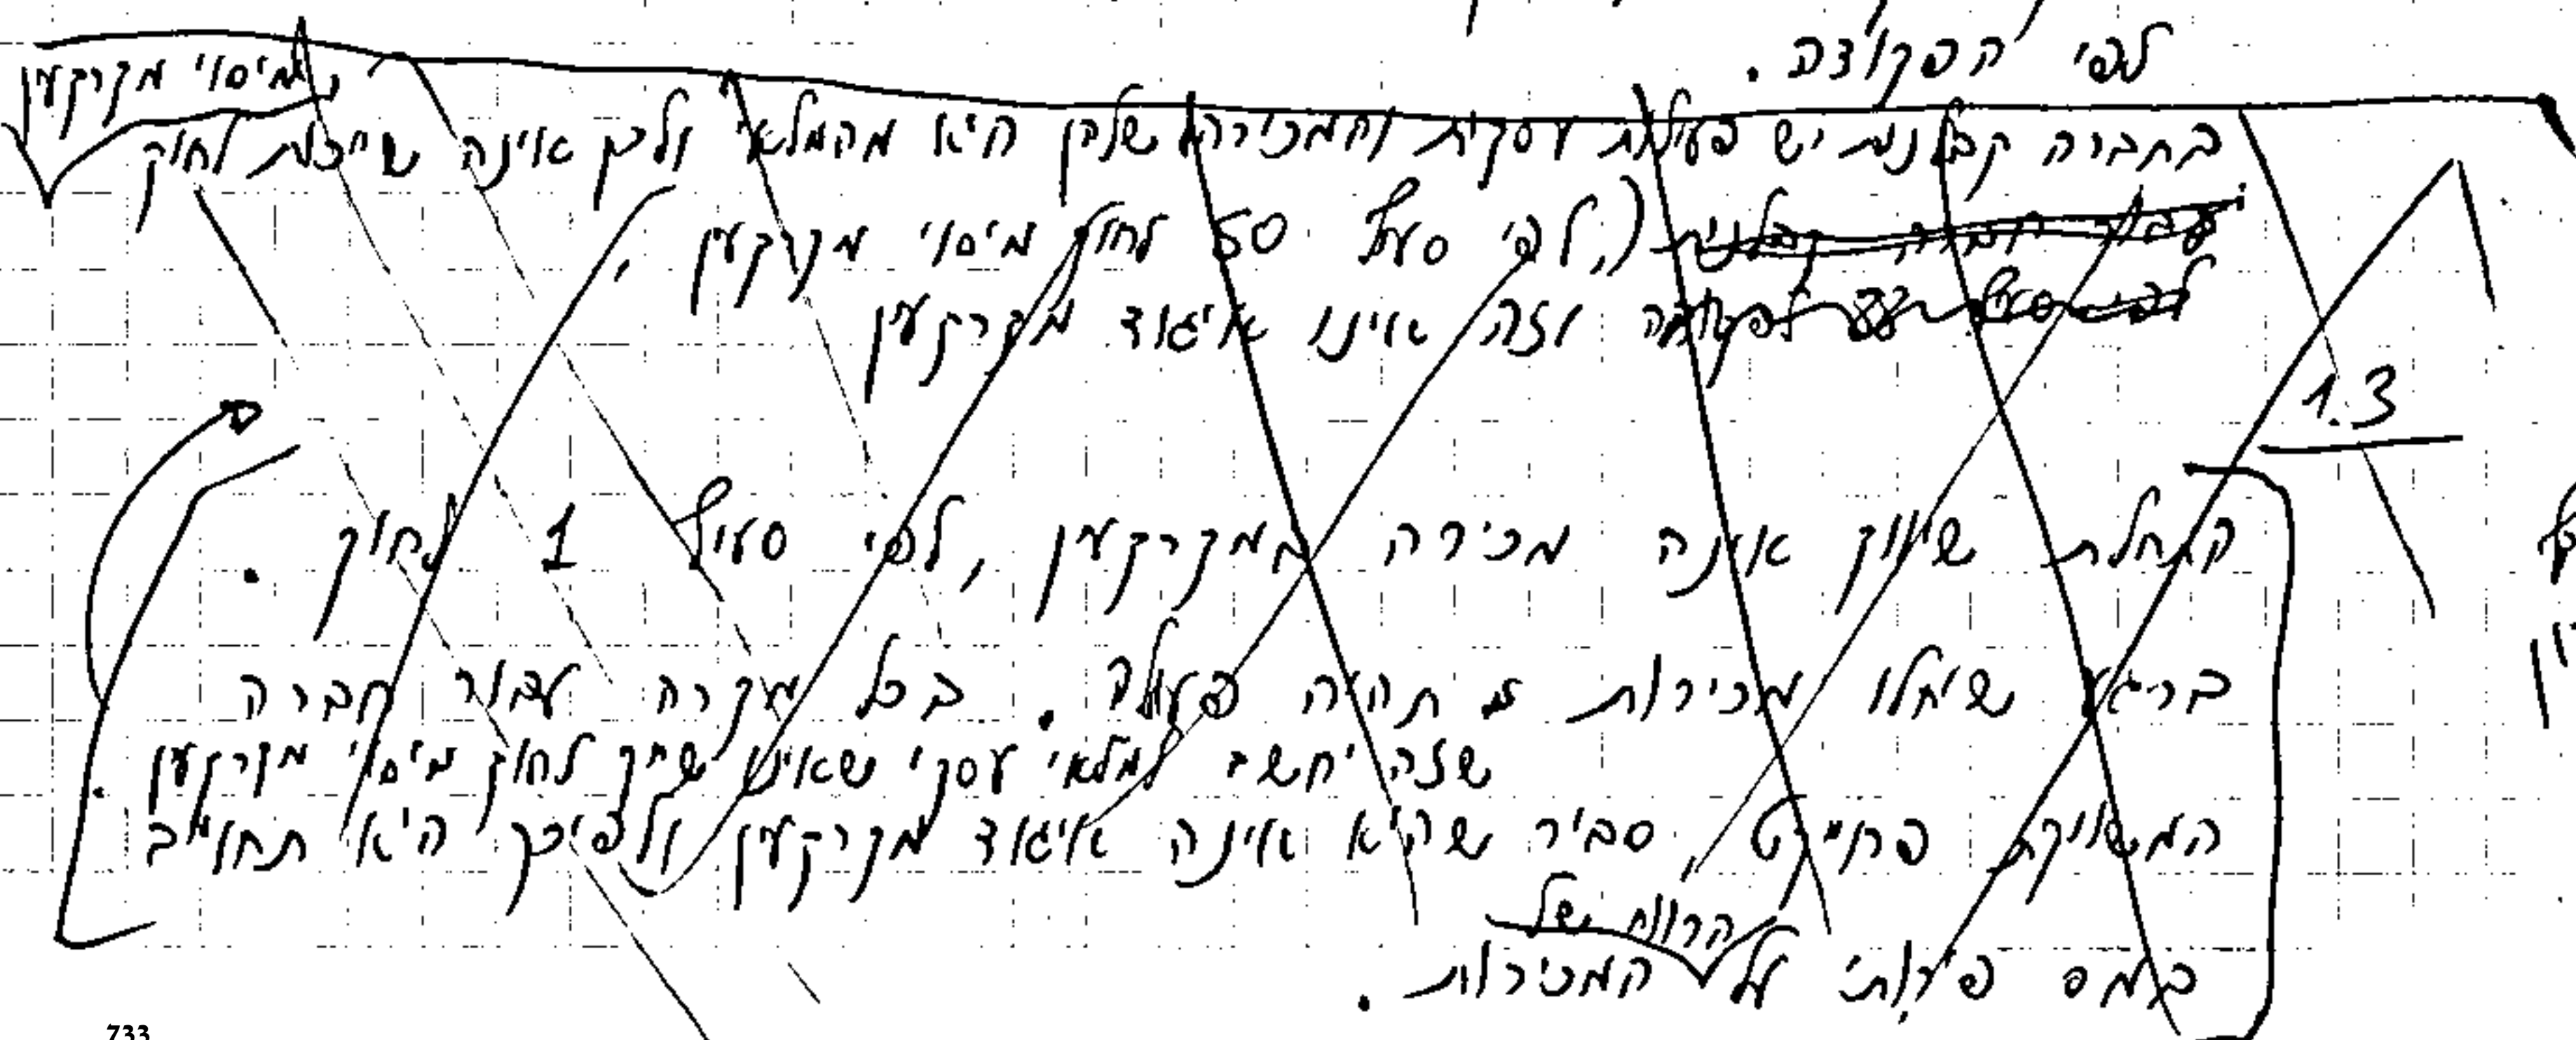 לפי הפקודה.
מיסוי מקרקעין
בחברה קבלנית יש פעילות עסקית והמכירה שלהן היא מהמלאי ולכן אינה שייכת לחוק
(לפי סעיף 50 לחוק מיסוי מקרקעין,
וזה אינו איגוד מקרקעין
1.3
התחלת שיווק אינה מכירה במקרקעין, לפי סעיף 1 לחוק.
ברגע שיחלו מכירות תהיה פעולה. בכל מקרה עבור חברה
שזה יחשב למלאי עסקי שאינו שייך לחוק מיסוי מקרקעין.
המשווקת פרוייקט, סביר שהיא אינה איגוד מקרקעין ולפיכך היא תחוייב
הרווח של
במס פירותי על המכירות.
733